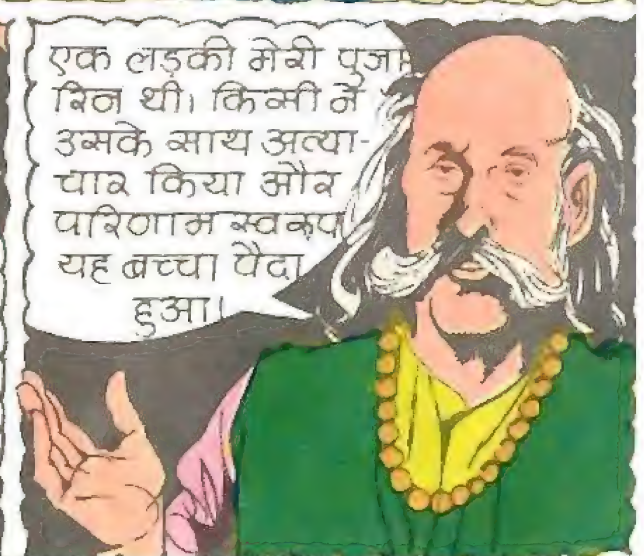 एक लड़की मेरी पुजा
रिन थी। किसी ने
उसके साथ अत्या-
चार किया और
परिणाम स्वरूप
यह बच्चा पैदा
हुआ।